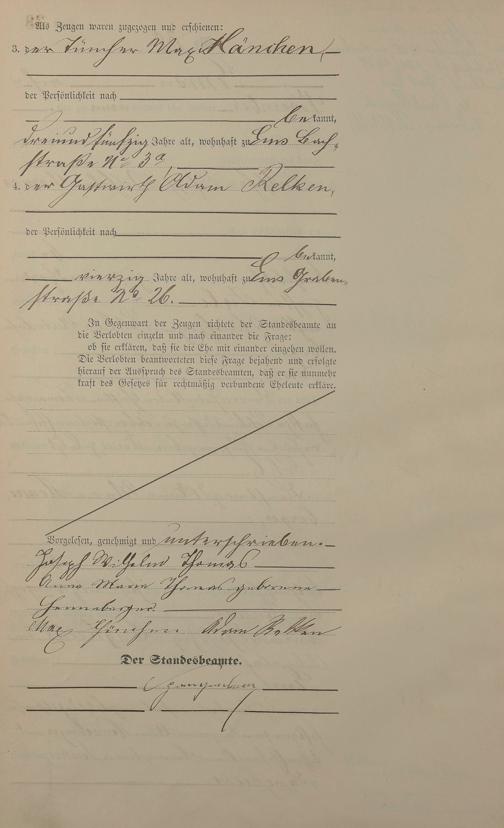 Als Zeugen waren zugezogen und erschienen:
3. der Tüncher Max Hänchen,
der Persönlichkeit nach
bekannt,
dreiundfünfzig Jahre alt, wohnhaft zu Ems Bach-
straße No 3a
4. der Gastwirth Adam Relken,
der Persönlichkeit nach
bekannt,
vierzig Jahre alt, wohnhaft zu Ems Graben-
straße No 26.
In Gegenwart der Zeugen richtete der Standesbeamte an
die Verlobten einzeln und nach einander die Frage:
ob sie erklären, daß sie die Ehe mit einander eingehen wollen.
Die Verlobten beantworteten diese Frage bejahend und erfolgte
hierauf der Ausspruch des Standesbeamten, daß er sie nunmehr
kraft des Gesetzes für rechtmäßig verbundene Eheleute erkläre.
Vorgelesen, genehmigt und unterschrieben.
Joseph Wilhelm Thomas
Anna Maria Thomas geborene
Henneberger
Max Hänchen Adam Relken
Der Standesbeamte.